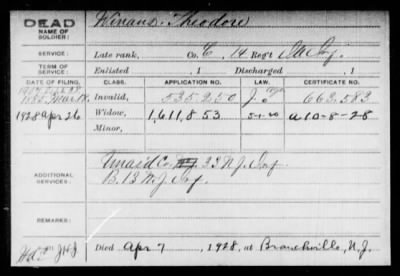 DEAD
NAME OF SOLDIER: Winans, Theodore
SERVICE: Late rank, Co. E, 14 Reg't
TERM OF SERVICE: Enlisted , 1 Discharged , 1
DATE OF FILING. CLASS. APPLICATION NO. LAW. CERTIFICATE NO.
1885 Mar 14, Invalid, 535,250 663,583
1928 Apr 26 Widow, 1,611,853 5-1-20 a 10-8-28
Minor,
ADDITIONAL SERVICES: Unas'd Co. 33 N.J. Inf.
B. 13 N.J. Inf.
REMARKS:
Died Apr 7, 1928, at Branchville, N.J.